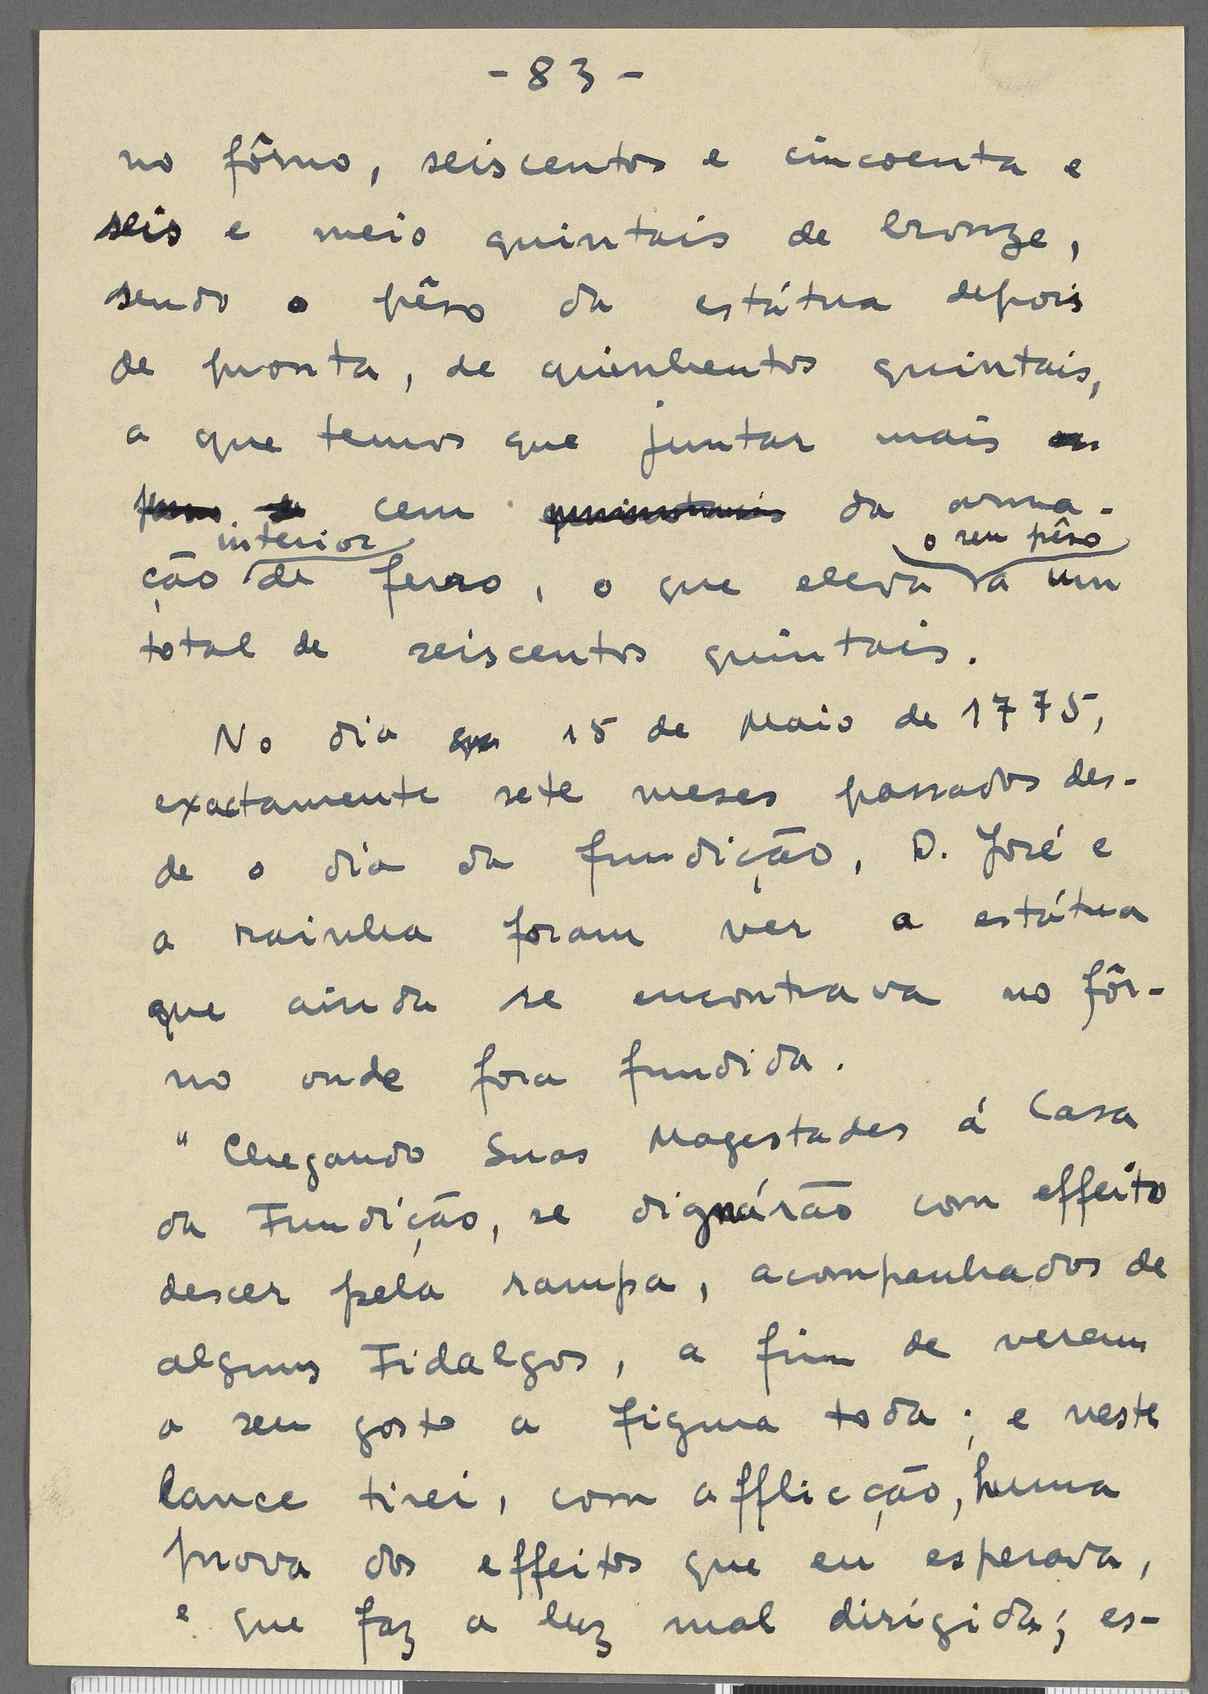 - 83 -
no fôrno, seiscentos e cincoenta e
seis e meio quintais de bronze,
sendo o pêso da estátua depois
de pronta, de quinhentos quintais,
a que temos que juntar mais
cem quinintais da arma-
interior o seu pêso
ção de ferro, o que eleva a um
total de seiscentos quintais.
No dia 15 de Maio de 1775,
exactamente sete meses passados des-
de o dia da fundição, D. José e
a rainha foram ver a estátua
que ainda se encontrava no fôr-
no onde fora fundida.
"Chegando Suas Magestades á Casa
da Fundição, se dignárão com effeito
descer pela rampa, acompanhados de
alguns Fidalgos, a fim de verem
a seu gosto a figura toda; e neste
lance tirei, com afflicção, huma
prova dos effeitos que eu esperava,
e que faz a luz mal dirigida; es-